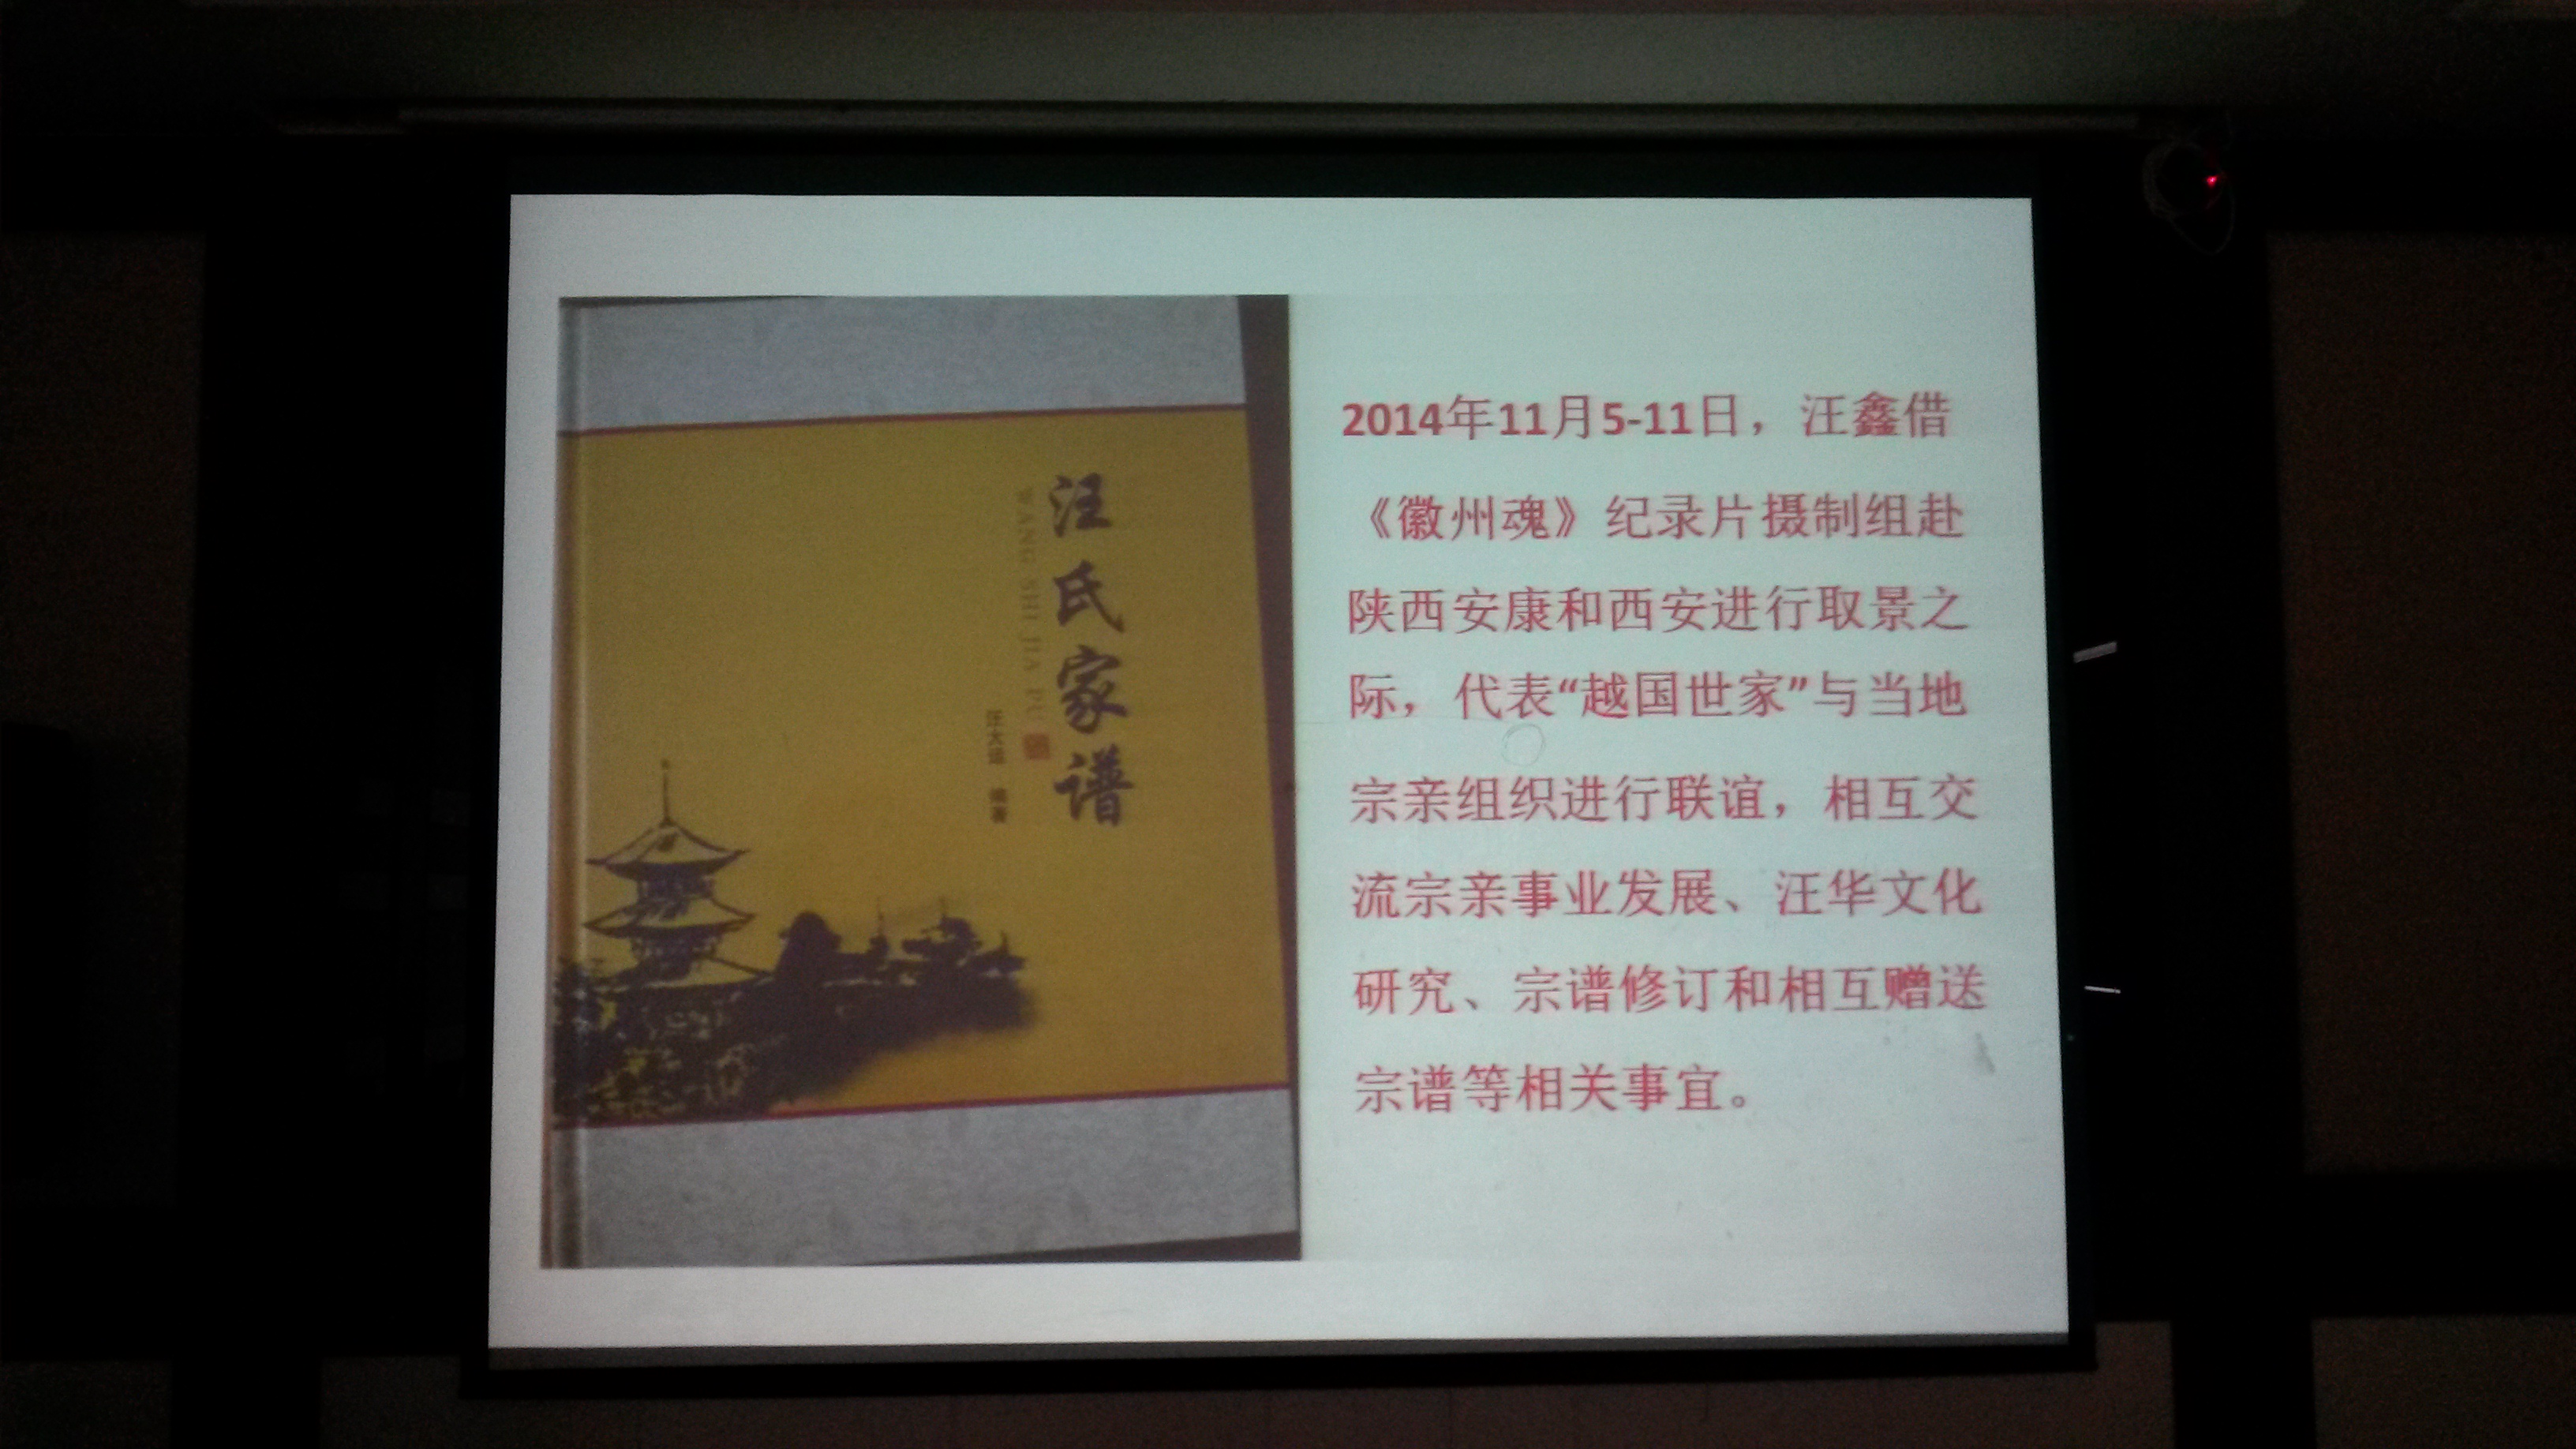 汪氏家谱
WANG SHI JIA PU
编著
2014年11月5-11日，汪鑫借
《徽州魂》纪录片摄制组赴
陕西安康和西安进行取景之
际，代表“越国世家”与当地
宗亲组织进行联谊，相互交
流宗亲事业发展、汪华文化
研究、宗谱修订和相互赠送
宗谱等相关事宜。